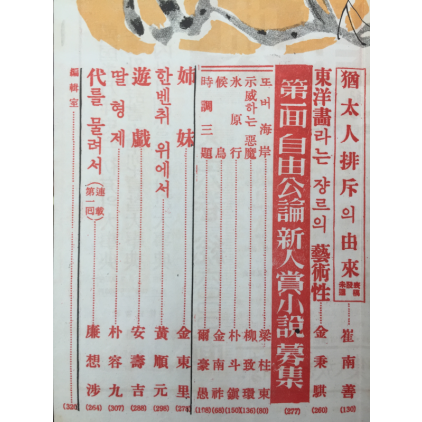 猶太人排斥의 由來 崔南善 (130)
東洋畫라는 쟝르의 藝術性 金秉騏 (260)
第一回 自由公論新人賞小說募集 (277)
또버海岸 梁柱東 (80)
示威하는 惡魔 柳致環 (136)
氷原行 朴斗鎭 (150)
候鳥 金南祚 (65)
時調三題 爾豪愚 (108)
姉妹 金東里
한벤취 위에서 黃順元 (298)
遊戱 安壽吉 (288)
딸 형제 朴容九 (307)
代를 물려서 (連載 第一回) 廉想涉 (264)
編輯室 (328)